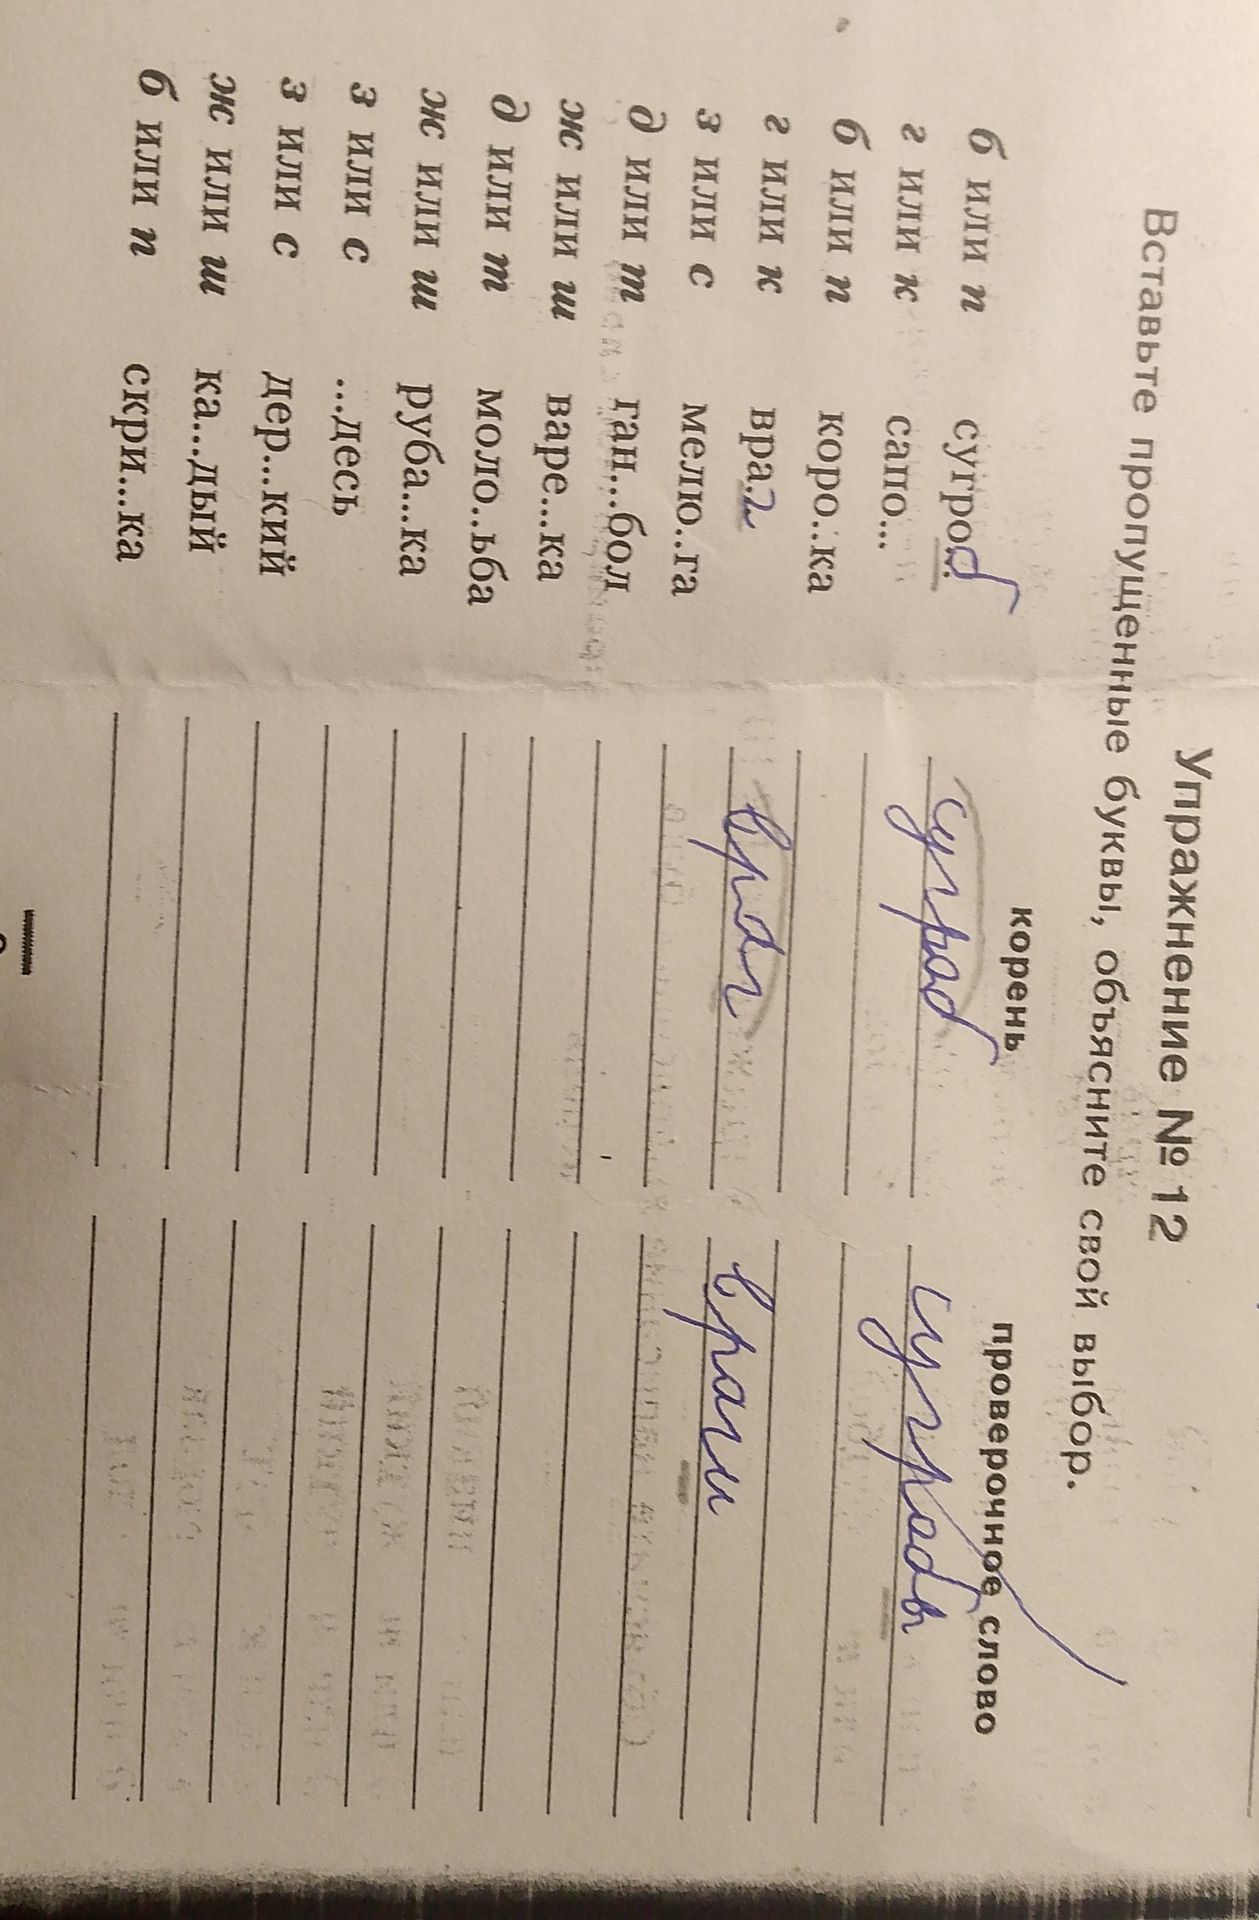 Упражнение № 12
Вставьте пропущенные буквы, объясните свой выбор.
корень проверочное слово
б или п сугроб сугроб сугробы
г или к сапо...
б или п коро..ка
г или к враг враг враги
з или с мелю..га
д или т ган...бол
ж или ш варе...ка
д или т моло..ьба
ж или ш руба...ка
з или с ...десь
з или с дер...кий
ж или ш ка...дый
б или п скри...ка